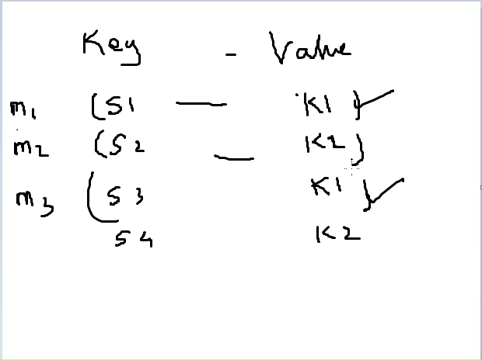 Key - Value
m1 (S1 — K1)
m2 (S2 — K2)
m3 (S3 K1)
S4 K2